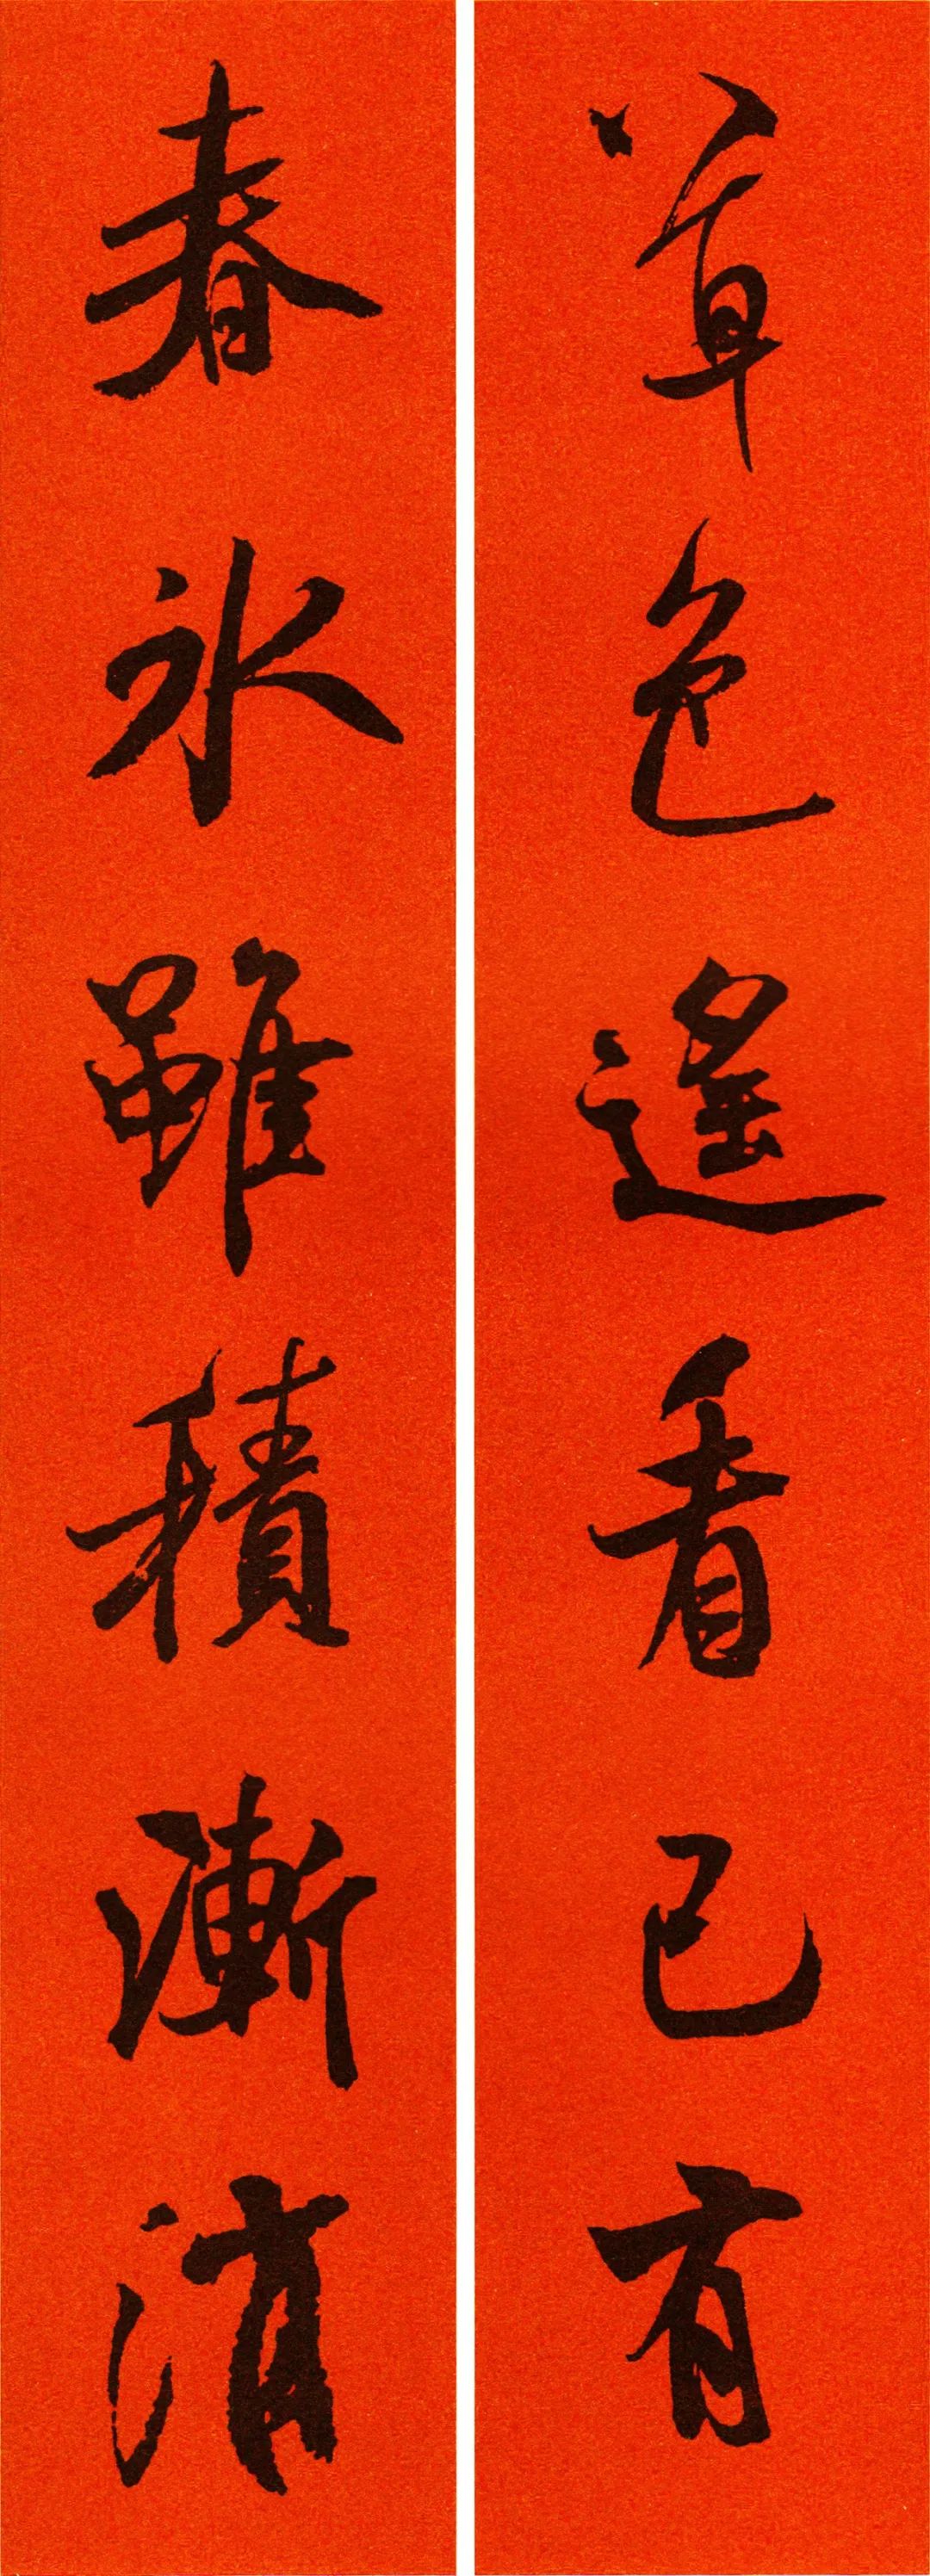 草色遥看已有
春氷雖積漸消